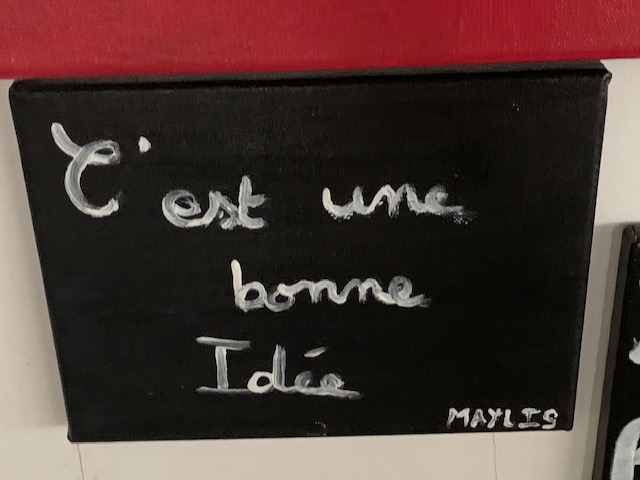 C'est une
bonne
Idée
MAYLIS